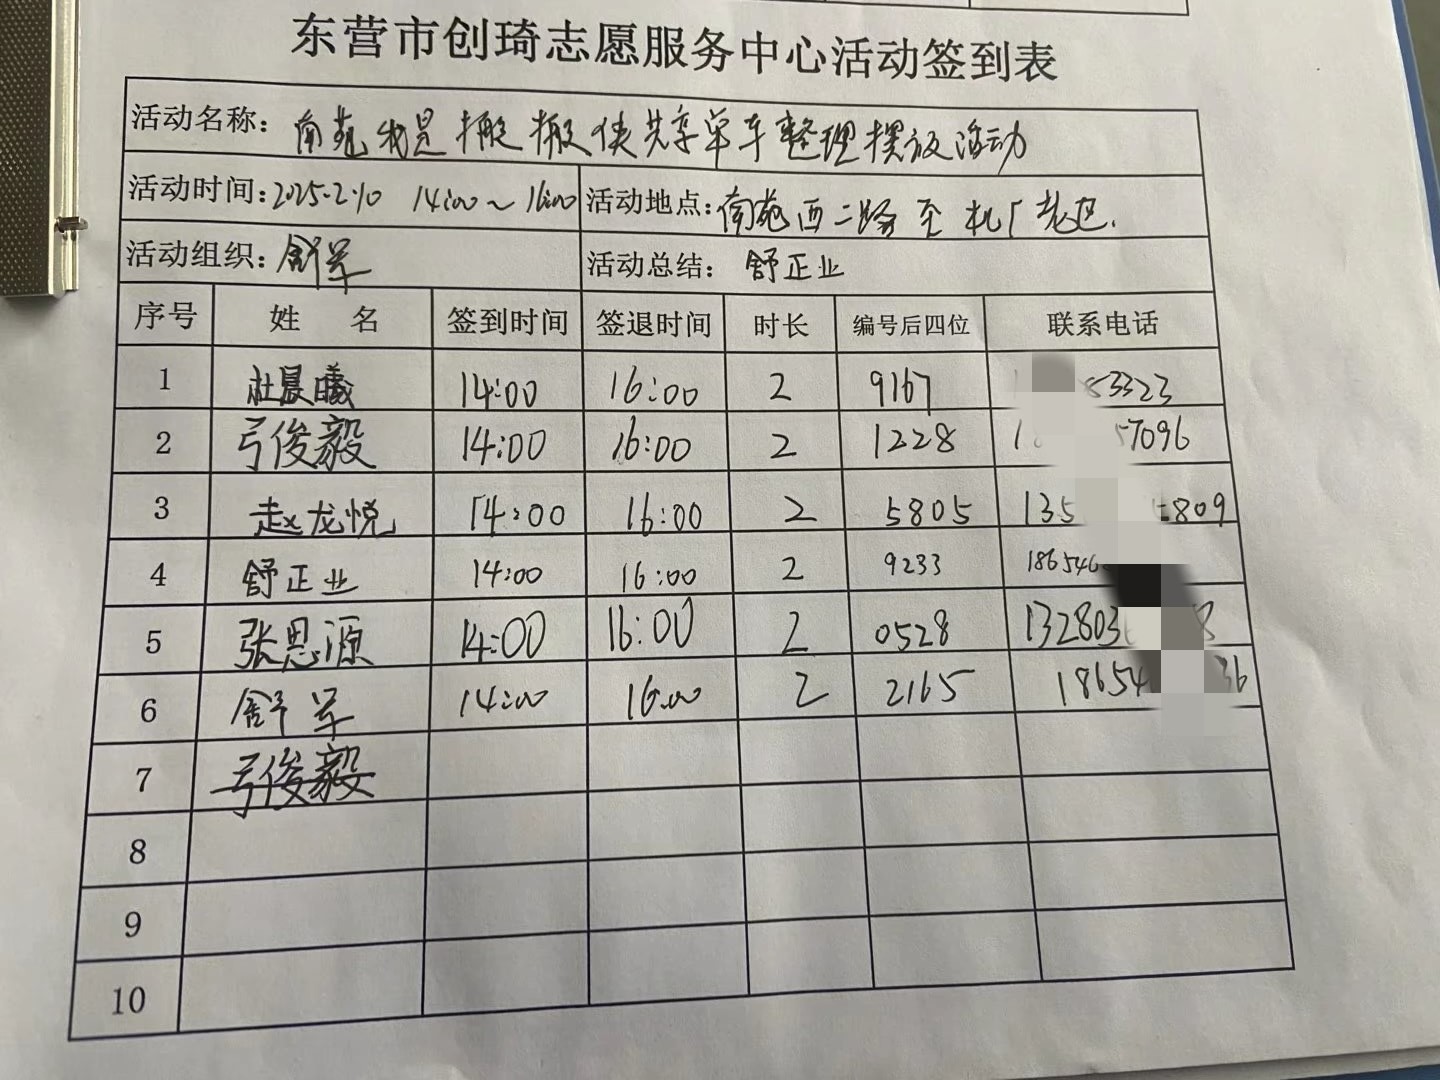 东营市创琦志愿服务中心活动签到表
活动名称: 南苑我是搬搬侠共享单车整理摆放活动
活动时间: 2025.2.10 14:00~16:00 活动地点: 南苑西二路至机厂老区.
活动组织: 舒军 活动总结: 舒正业
序号 姓 名 签到时间 签退时间 时长 编号后四位 联系电话
1 杜晨曦 14:00 16:00 2 9167 53323
2 弓俊毅 14:00 16:00 2 1228 57096
3 赵龙悦 14:00 16:00 2 5805 135 809
4 舒正业 14:00 16:00 2 9233 186546
5 张恩源 14:00 16:00 2 0528 132803 8
6 舒军 14:00 16:00 2 2165 18654 36
7 弓俊毅
8
9
10